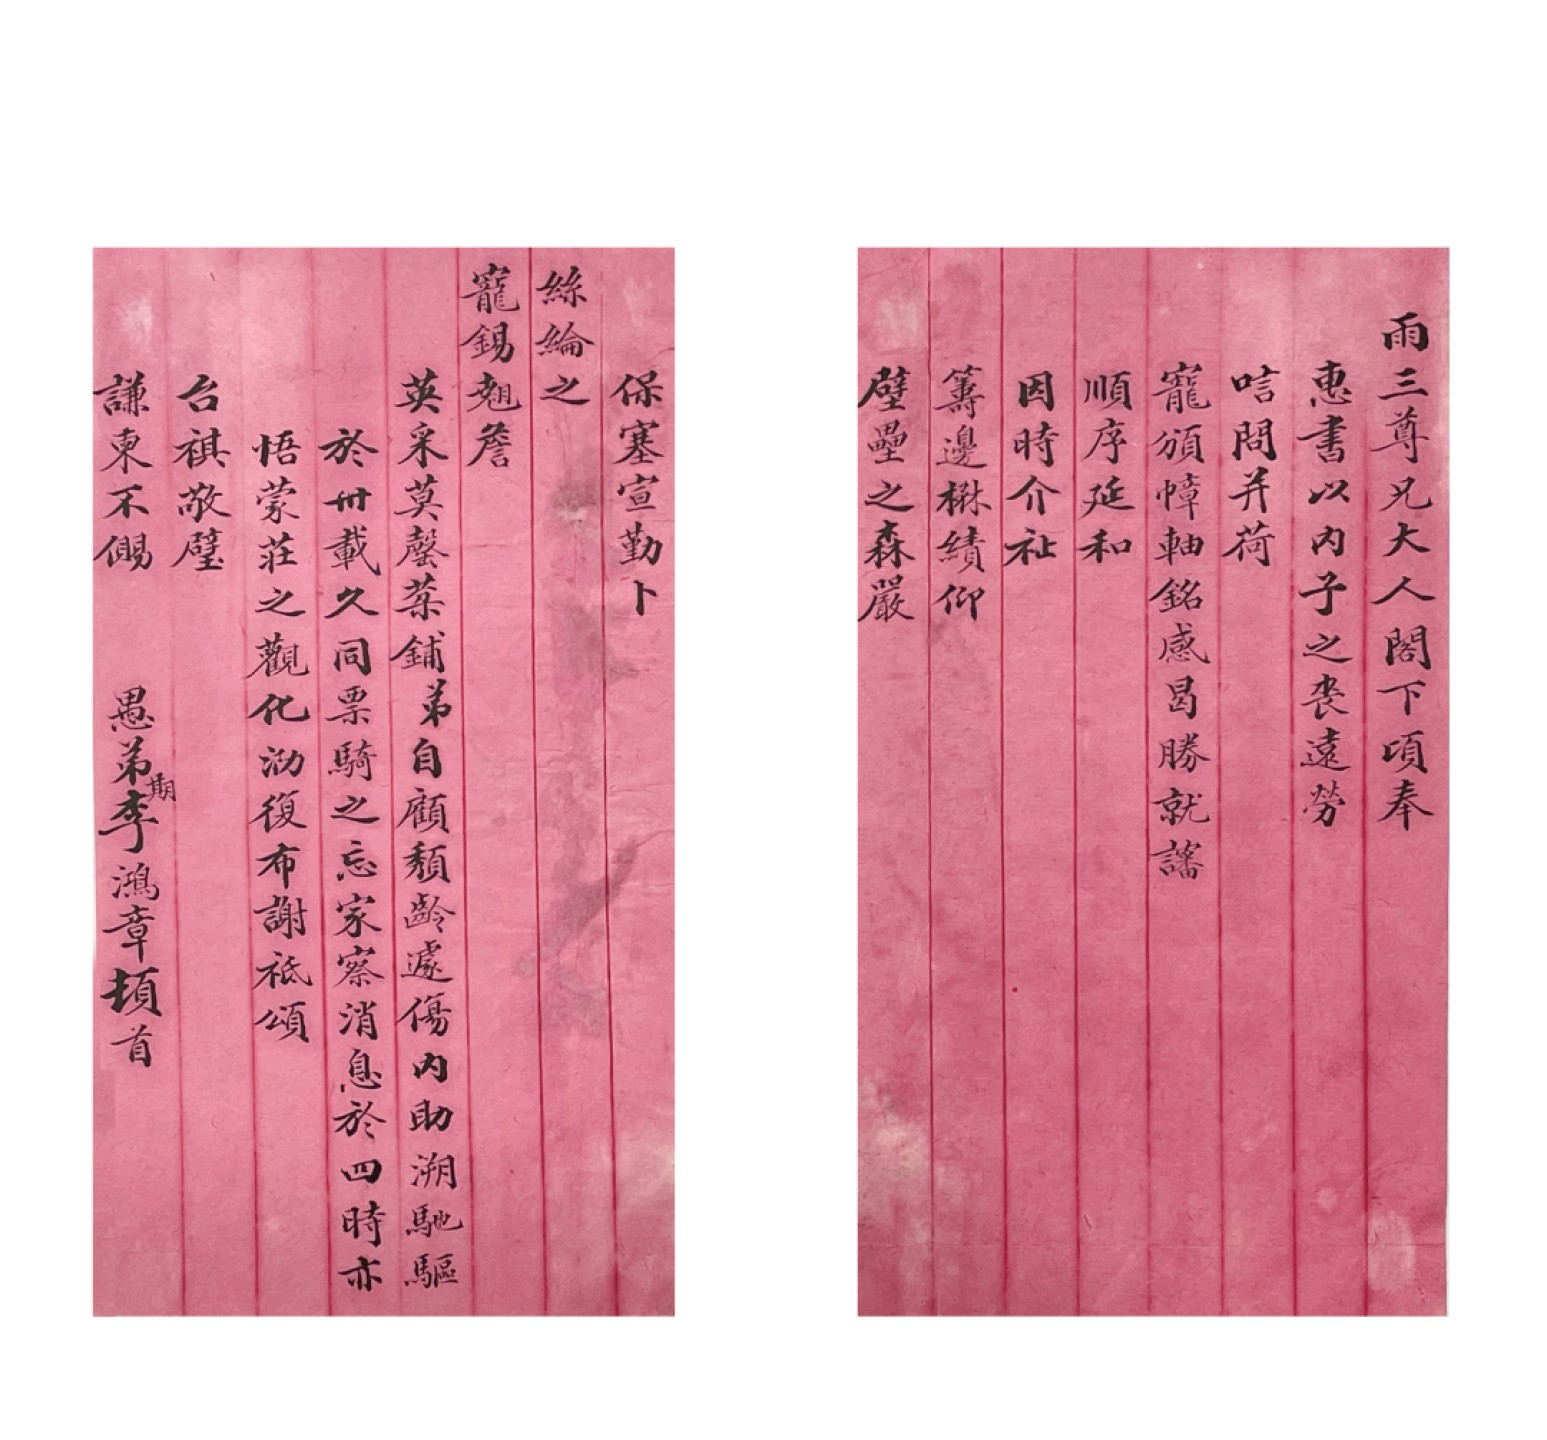 雨三尊兄大人閣下頃奉
惠書以內子之喪遠勞
唁問并荷
寵頒幛軸銘感曷勝就諳
順序延和
因時介祉
籌邊楙績仰
壁壘之森嚴
保塞宣勤卜
絲綸之
寵錫翹詹
英采莫罄葵鋪弟自顧頹齡遽傷內助溯馳驅
於卅載久同票騎之忘家察消息於四時亦
悟蒙莊之觀化泐復布謝祗頌
台祺敬璧
謙柬不儩
愚弟期李鴻章頓首